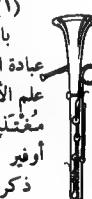 (١)
با
عبادة ا
علم الأ
مغتذ
أوفير
ذكر